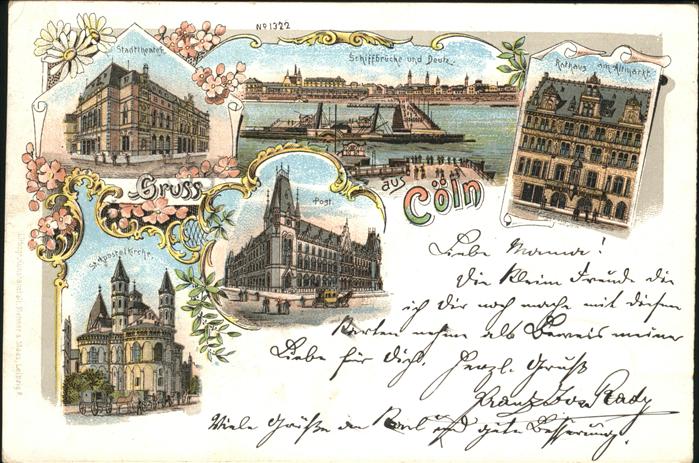 No 1322
Stadttheater.
Schiffbrücke und Deutz.
Rathaus am Altmarkt.
Gruss
aus
Cöln
Post.
St. Apostelkirche.
Liebe Mama!
Die kleine Freude die
ich Dir noch mache mit diesen
Karten nehme als Beweis meiner
Liebe für Dich. Herzl. Grüße
Franz
Viele Grüße an Karl und gute Besserung.